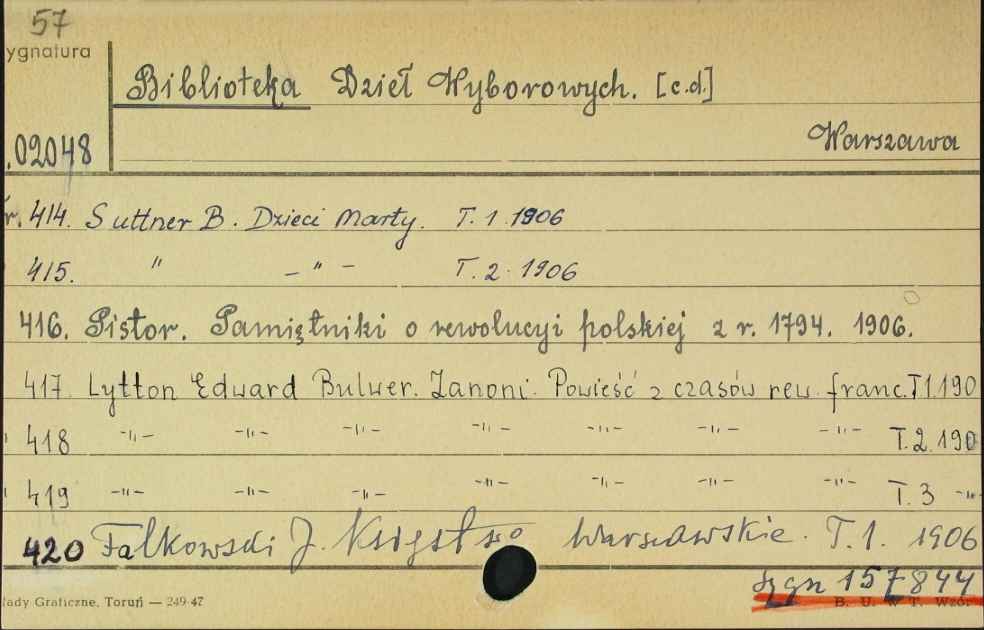 57
ygnatura
Biblioteka Dzieł Wyborowych. [c.d.]
.02048
Warszawa
r. 414. Suttner B. Dzieci Marty. T. 1. 1906
415. " - " - T. 2. 1906
416. Pistor. Pamiętniki o rewolucyi polskiej z r. 1794. 1906.
417. Lytton Edward Bulwer. Zanoni. Powieść z czasów rew. franc. T1.190
418 -"- -"- -"- -"- -"- -"- -"- T.2.190
419 -"- -"- -"- -"- -"- -"- -"- T. 3 -"-
420 Falkowski J. Księstwo Warszawskie. T.1. 1906
sygn 157844
łady Graficzne. Toruń — 249-47
B. U. W T. Wzór